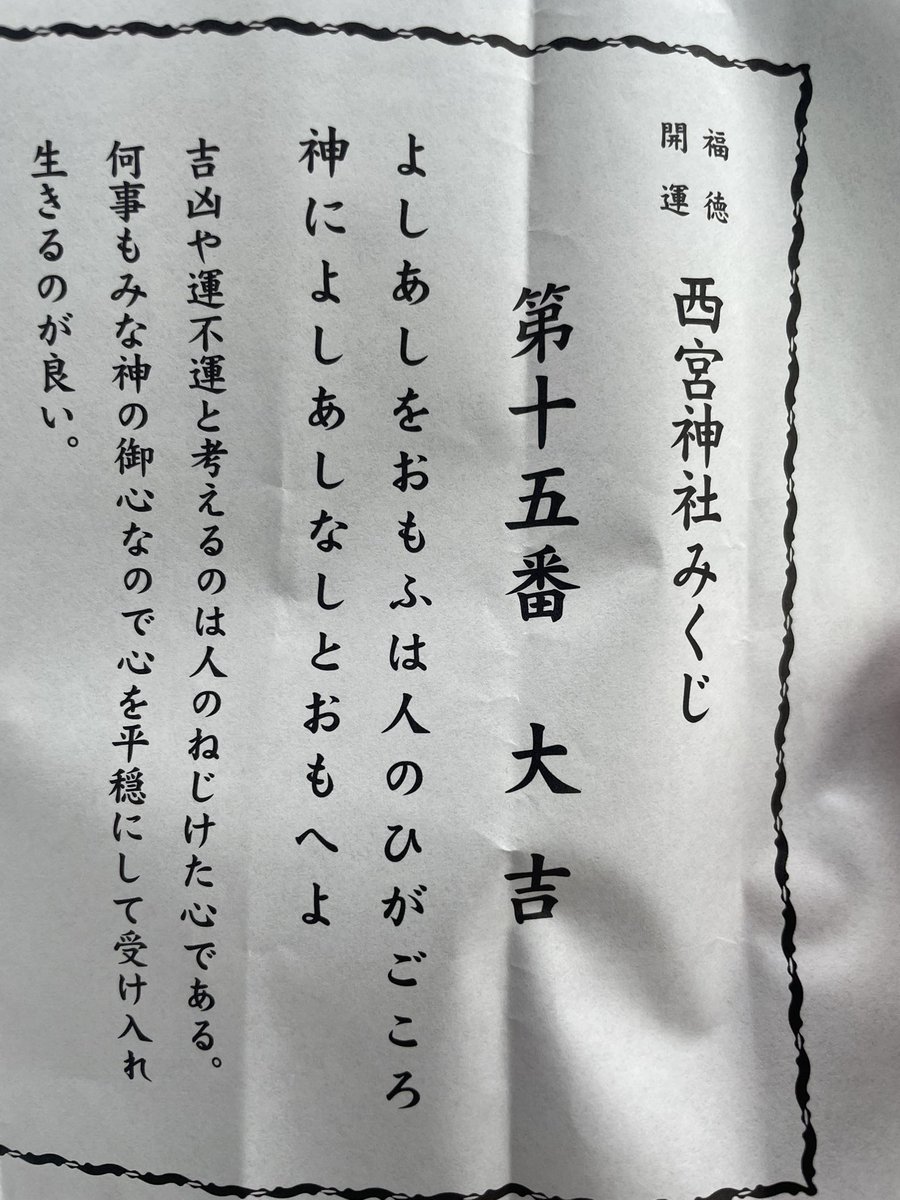 福徳
開運
西宮神社みくじ
第十五番 大吉
よしあしをおもふは人のひがごころ
神によしあしなしとおもへよ
吉凶や運不運と考えるのは人のねじけた心である。
何事もみな神の御心なので心を平穏にして受け入れ
生きるのが良い。